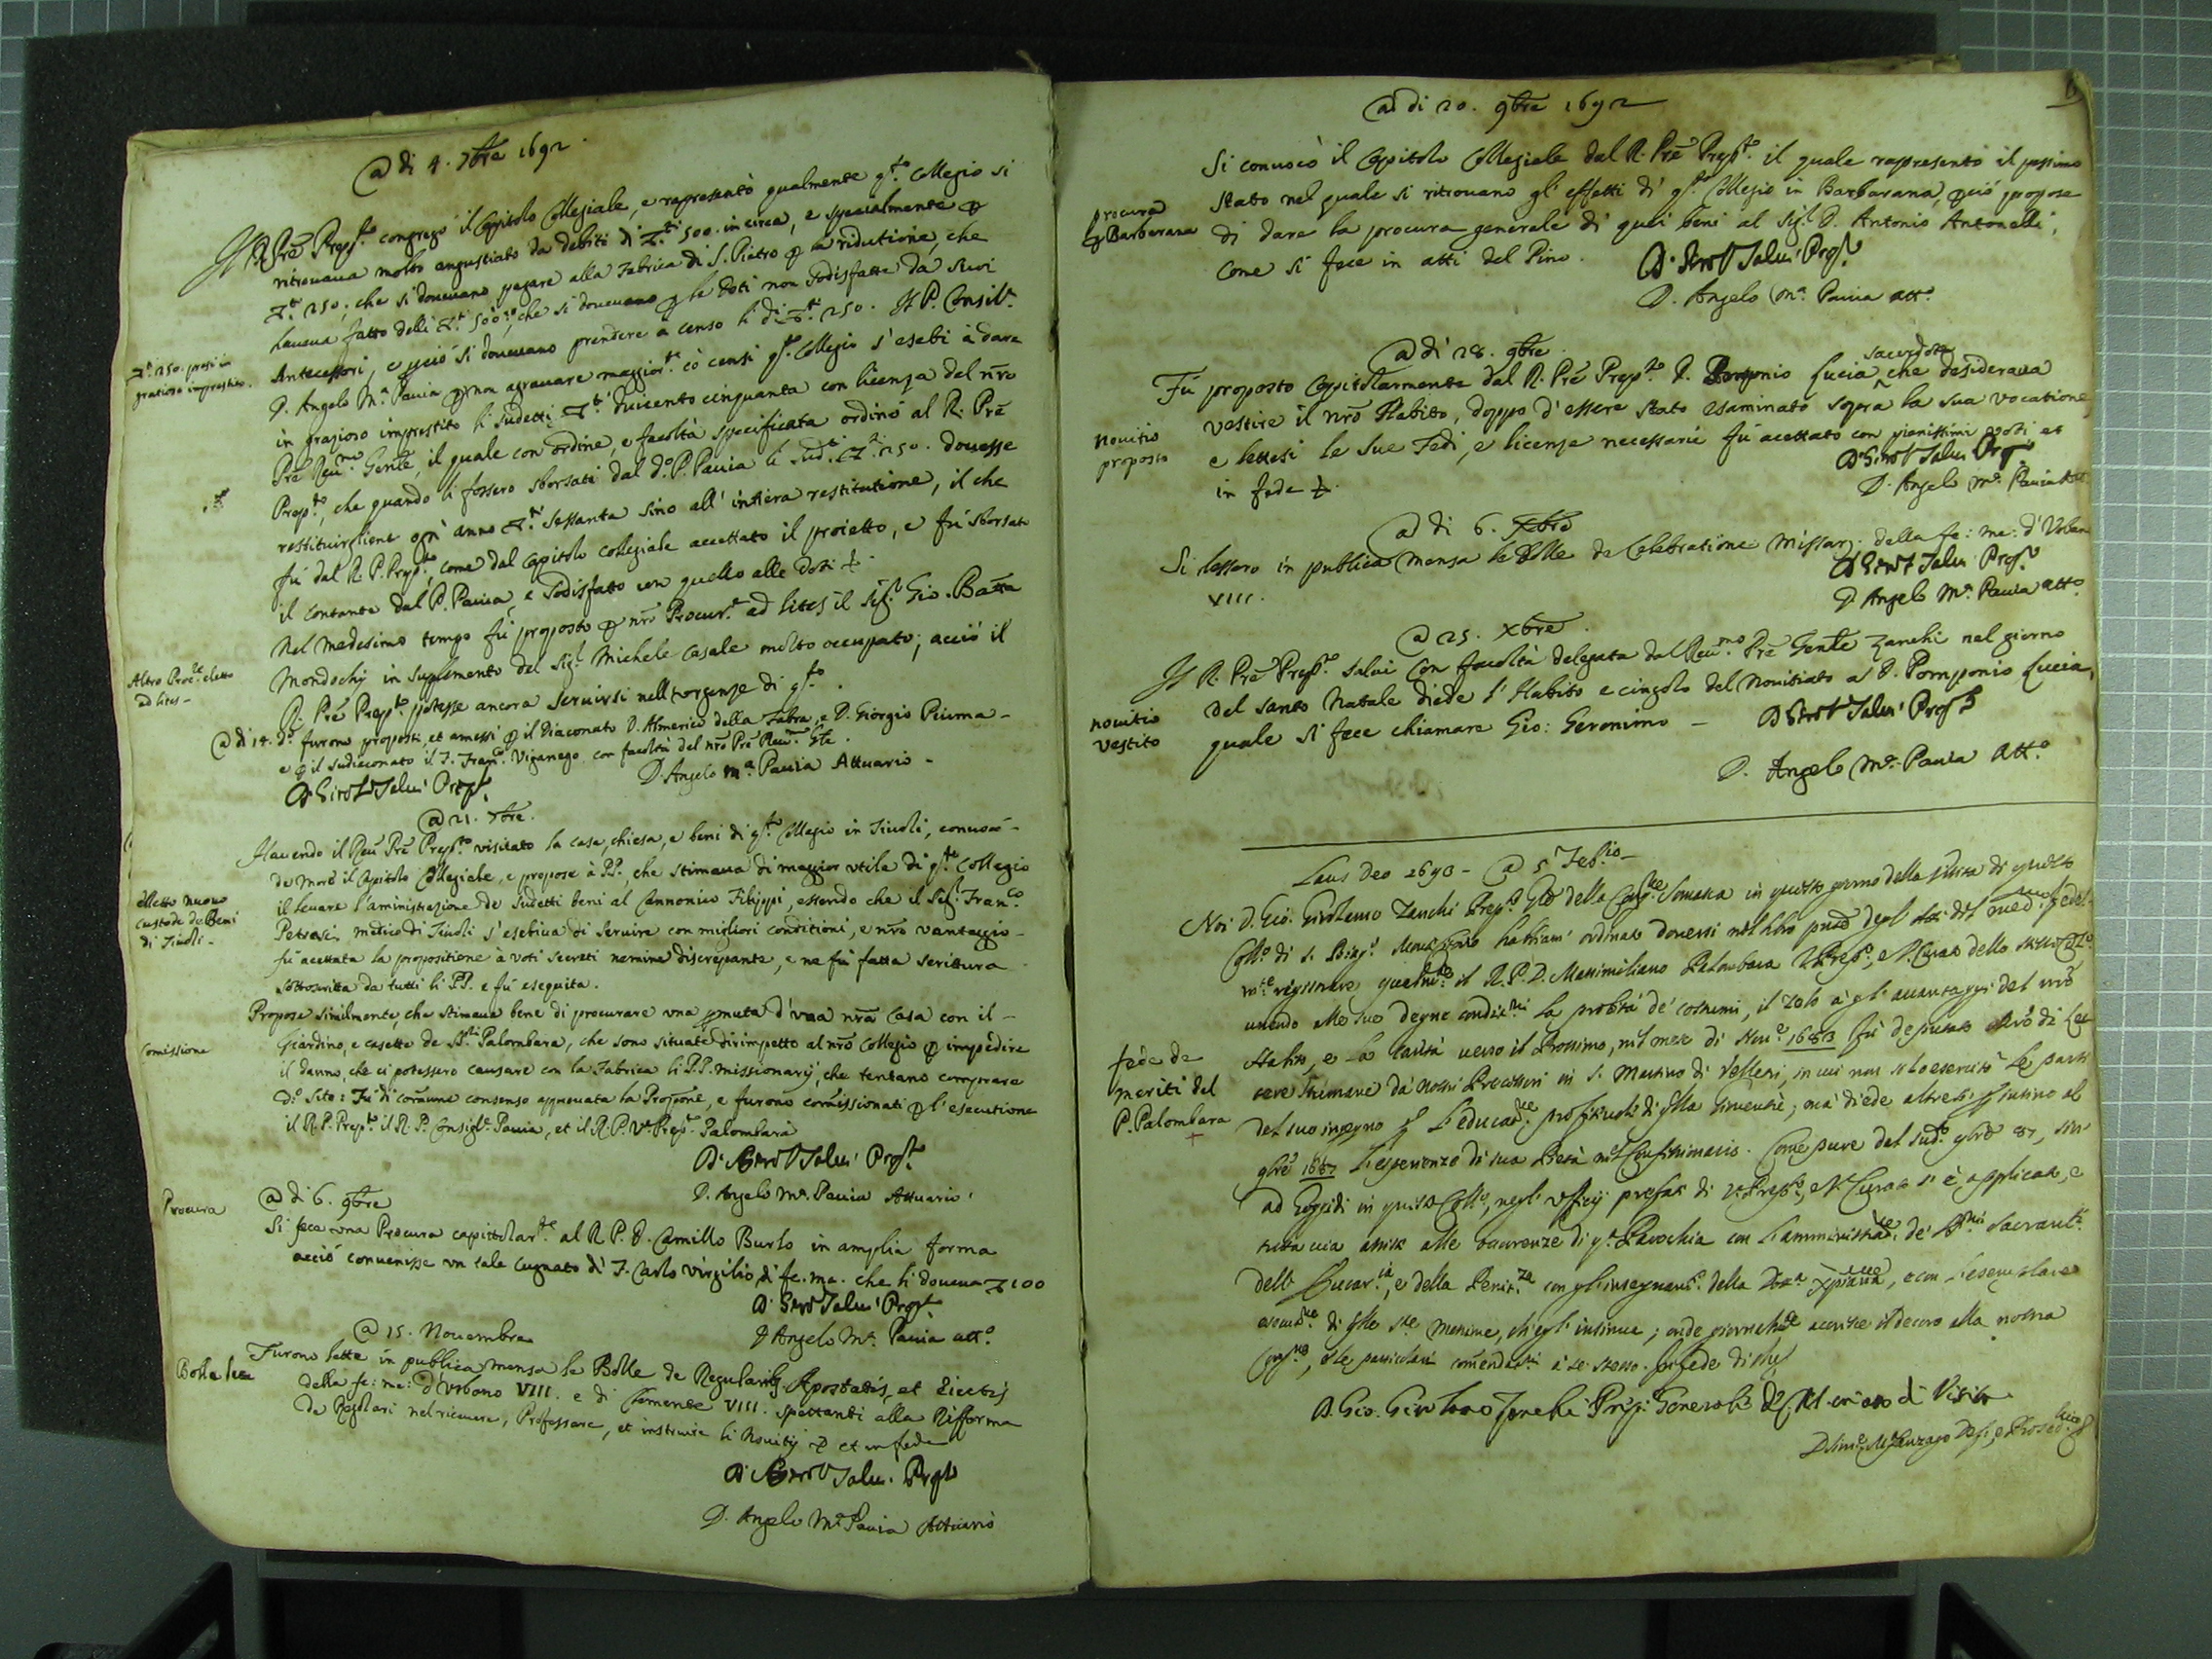 @ di 4. 7bre 1692.
Il R. Pre Prepto. congregò il Capitolo Collegiale, e rapresentò qualmente qto. Collegio si
ritrouaua molto angustiato da debiti di 500. in circa, e specialmente
250; che si doueuano pagare alla Fabrica di S. Pietro la riduttione, che
haueua fatto delli 500:, che si doueuano le Doti non sodisfatte da suoi
Antecessori, e si doueuano prendere à censo li di 250. Il P. Consilre.
250. presi in
gratioso imprestito.
D. Angelo Ma. Pauia non agrauare maggiorte. cò censi qto. Collegio s'esebì à dare
in grazioso imprestito li sudetti duicento cinquanta con licenza del nro
Pre Reumo. Genle, il quale con ordine, e facoltà specificata ordinò al R. Pre
Prepto., che quando li fossero sborsati dal do. P. Pauia li sudti. 250. douesse
restituirgliene ogn' anno sessanta sino all' intiera restitutione, il che
fù dal R. P. Prepto., come dal Capitolo collegiale accettato il proietto, e fù sborsato
il contante dal P. Pauia, e sodisfatto con quello alle Doti
Nel medesimo tempo fù proposto nro Procure. ad lites il Sigr. Gio. Batta
Altro Procre. eletto
ad lites -
Mondochij in suplemento del Sigr. Michele Casale molto occupato; acciò il
R. Pre Prepto. potesse ancora seruirsi nell' vrgenze di qto.
@ di 14. do. furono proposti, et amessi il Diaconato D. Almerico della Fabra, e D. Giorgio Piuma -
e il sudiaconato il F. Franco. Viganego con facoltà del nro Pre Reumo. Gle.
D. Girol Salui Prepto.
D. Angelo Ma. Pauia Attuario -
@ 21. 7bre.
Hauendo il Reu Pre Prepto. visitato la casa, chiesa, e beni di qto. Collegio in Tiuoli, conuocò -
de more il Capitolo Collegiale, e propose à PP., che stimaua di maggior vtile di qto. Collegio
il leuare l'aministrazione de sudetti beni al Cannonico Filippi, essendo che il Sigr. Franco.
elletto nuouo
custode de Beni
di Tiuoli -
Petrasi medico di Tiuoli s'esebiua di seruire con migliori conditioni, e nro vantaggio -
fù acettata la propositione à voti secreti nemine discrepante, e ne fù fatta scrittura
sottoscritta da tutti li PP. e fù eseguita.
Propose similmente, che stimaua bene di procurare vna pmuta d'vna nra Casa con il -
Comissione
Giardino, e casette de Palombara, che sono situate dirimpetto al nro Collegio impedire
il danno, che ci potessero causare con la Fabrica li PP. missionarij, che tentano comprare
do. Sito: Fù di comune consenso approuata la Propone, e furono comissionati l'esecutione
il R. P. Prepto. il R. P. Consigle. Pauia, et il R. P. Ve Prepto. Palombara
D. Girol Salui Propto.
D. Angelo Ma. Pauia Attuario.
Procura
@ di 6. 9bre
Si fece vna Procura capitolarte. al R P. D. Camillo Burlo in amplia forma
acciò conuenisse vn tale Cugnato di F. Carlo Virgilio, di fe. me. che li doueua 100
D. Girol Salui Propto.
D Angelo Ma. Pauia atto.
@ 15. Nouembre
Bolle lette
Furono lette in publica mensa le Bolle de Regularibus Apostatis, et Eiectis
della fe: me: d'Vrbano VIII. e di Clemente VIII. spettanti alla Rifforma
de Regolari nel riceuere, Professare, et instruire li Nouitij et in fede
D. Girol Salui Propto
D. Angelo Ma Pauia Attuario
6
@ di 20. 9bre 1692
Si conuocò il Capitolo Collegiale dal R. Pre Prepto. il quale rapresentò il pessimo
procura
Barbarana
stato nel quale si ritrouano gl' effetti di qto. Collegio in Barbarana, pciò propose
di dare la procura generale di quei beni al Sigr. D. Antonio Antonelli,
come si fece in atti del Pino.
D. Girol Salui Propto.
D. Angelo Ma. Pauia atto.
@ di 28. 9bre.
sacerdote
Fù proposto Capitolarmente dal R. Pre Prepto. D. Pomponio Luccia, che desideraua
nouitio
proposto
vestire il nro Habito, doppo d'essere stato esaminato sopra la sua vocatione,
e lettesi le sue Fedi, e licenze necessarie fù acettato con pienissimi voti, et
in fede
D. Girol Salui Propto
D. Angelo Ma. Pauia atto
@ di 6. Xbre
Si lessero in publica mensa le Bolle de Celebratione Missar. della fe: me: d'Vrbano
VIII.
D Girol Salui Propto.
D. Angelo Ma. Pauia atto.
@ 25. Xbre.
Il R. Pre Prepto. Salui con facoltà delegata dal Reumo. Pre Genle Zanchi nel giorno
nouitio
vestito
del santo Natale diede l'Habito e cingolo del Nouitiato à D. Pomponio Luccia,
quale si fece chiamare Gio: Geronimo -
D Girol Salui Propto
D. Angelo Ma. Pauia Atto.
Laus Deo 1693 - @ 5 Febio -
Noi D. Gio. Girolamo Zanchi Prepto. Gle della Congne Somasca in questo giorno della visita di questo
Collo. di S. Biagio Monte Citorio habbiam' ordinato douersi nel libro degl' Atti del med. fedel-
mte. registrare qualmte. il R. P. D. Massimiliano Palombara V. Prepto., e V. Curato dello stesso Collo.
unendo alle sue degne conditni la probità de' costumi, il zelo à gl' auantaggi del nro
fede de
meriti del
P. Palombara
+
Habito, e la carità uerso il Prossimo, nel mese di Nou. 1683 fù deputato Mro di let-
tere Humane da' nostri Precessori in S. Martino di Velletri, in cui non solo esercitò le parti
del suo ingegno l'educatne. profitteuole di qlla Giouentù; ma' diede altresì sino al
9bre 1687 l'esperienze di sua Pietà nel Confessionario. Come pure dal sudo. 9bre 87, sin'
ad hoggidi in questo Collo, negl' vfficij prefati di V. Prepto, e V. Curato si è applicato, e
tutta uia assiste alle occorrenze di qta. Parochia con l'amministratne. de' Smi Sacramti.
dell' Eucaria., e della Penitza con gli insegnamti. della Dotta Xpiana, e con l'esemplare
esecutne. di qlle ste. Massime, ch'egli insinua; onde giornalmte accresce il decoro alla nostra
Congne, e le particolari comendatni à se stesso. In fede di che
D. Gio. Girolamo Zanchi Prep. Generale di C. R. S. in atto di Visita.